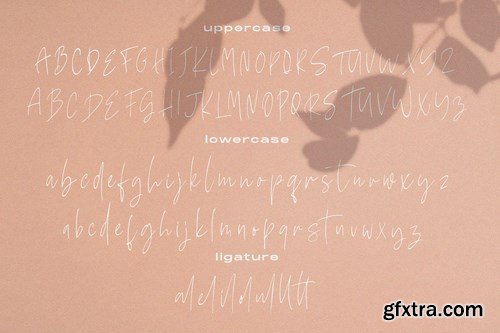 uppercase
ABCDEFGHIJKLMNOPQRSTUVWXYZ
ABCDEFGHIJKLMNOPQRSTUVWXYZ
lowercase
abcdefghijklmnopqrstuvwxyz
abcdefghijklmnopqrstuvwxyz
ligature
gfxtra.com